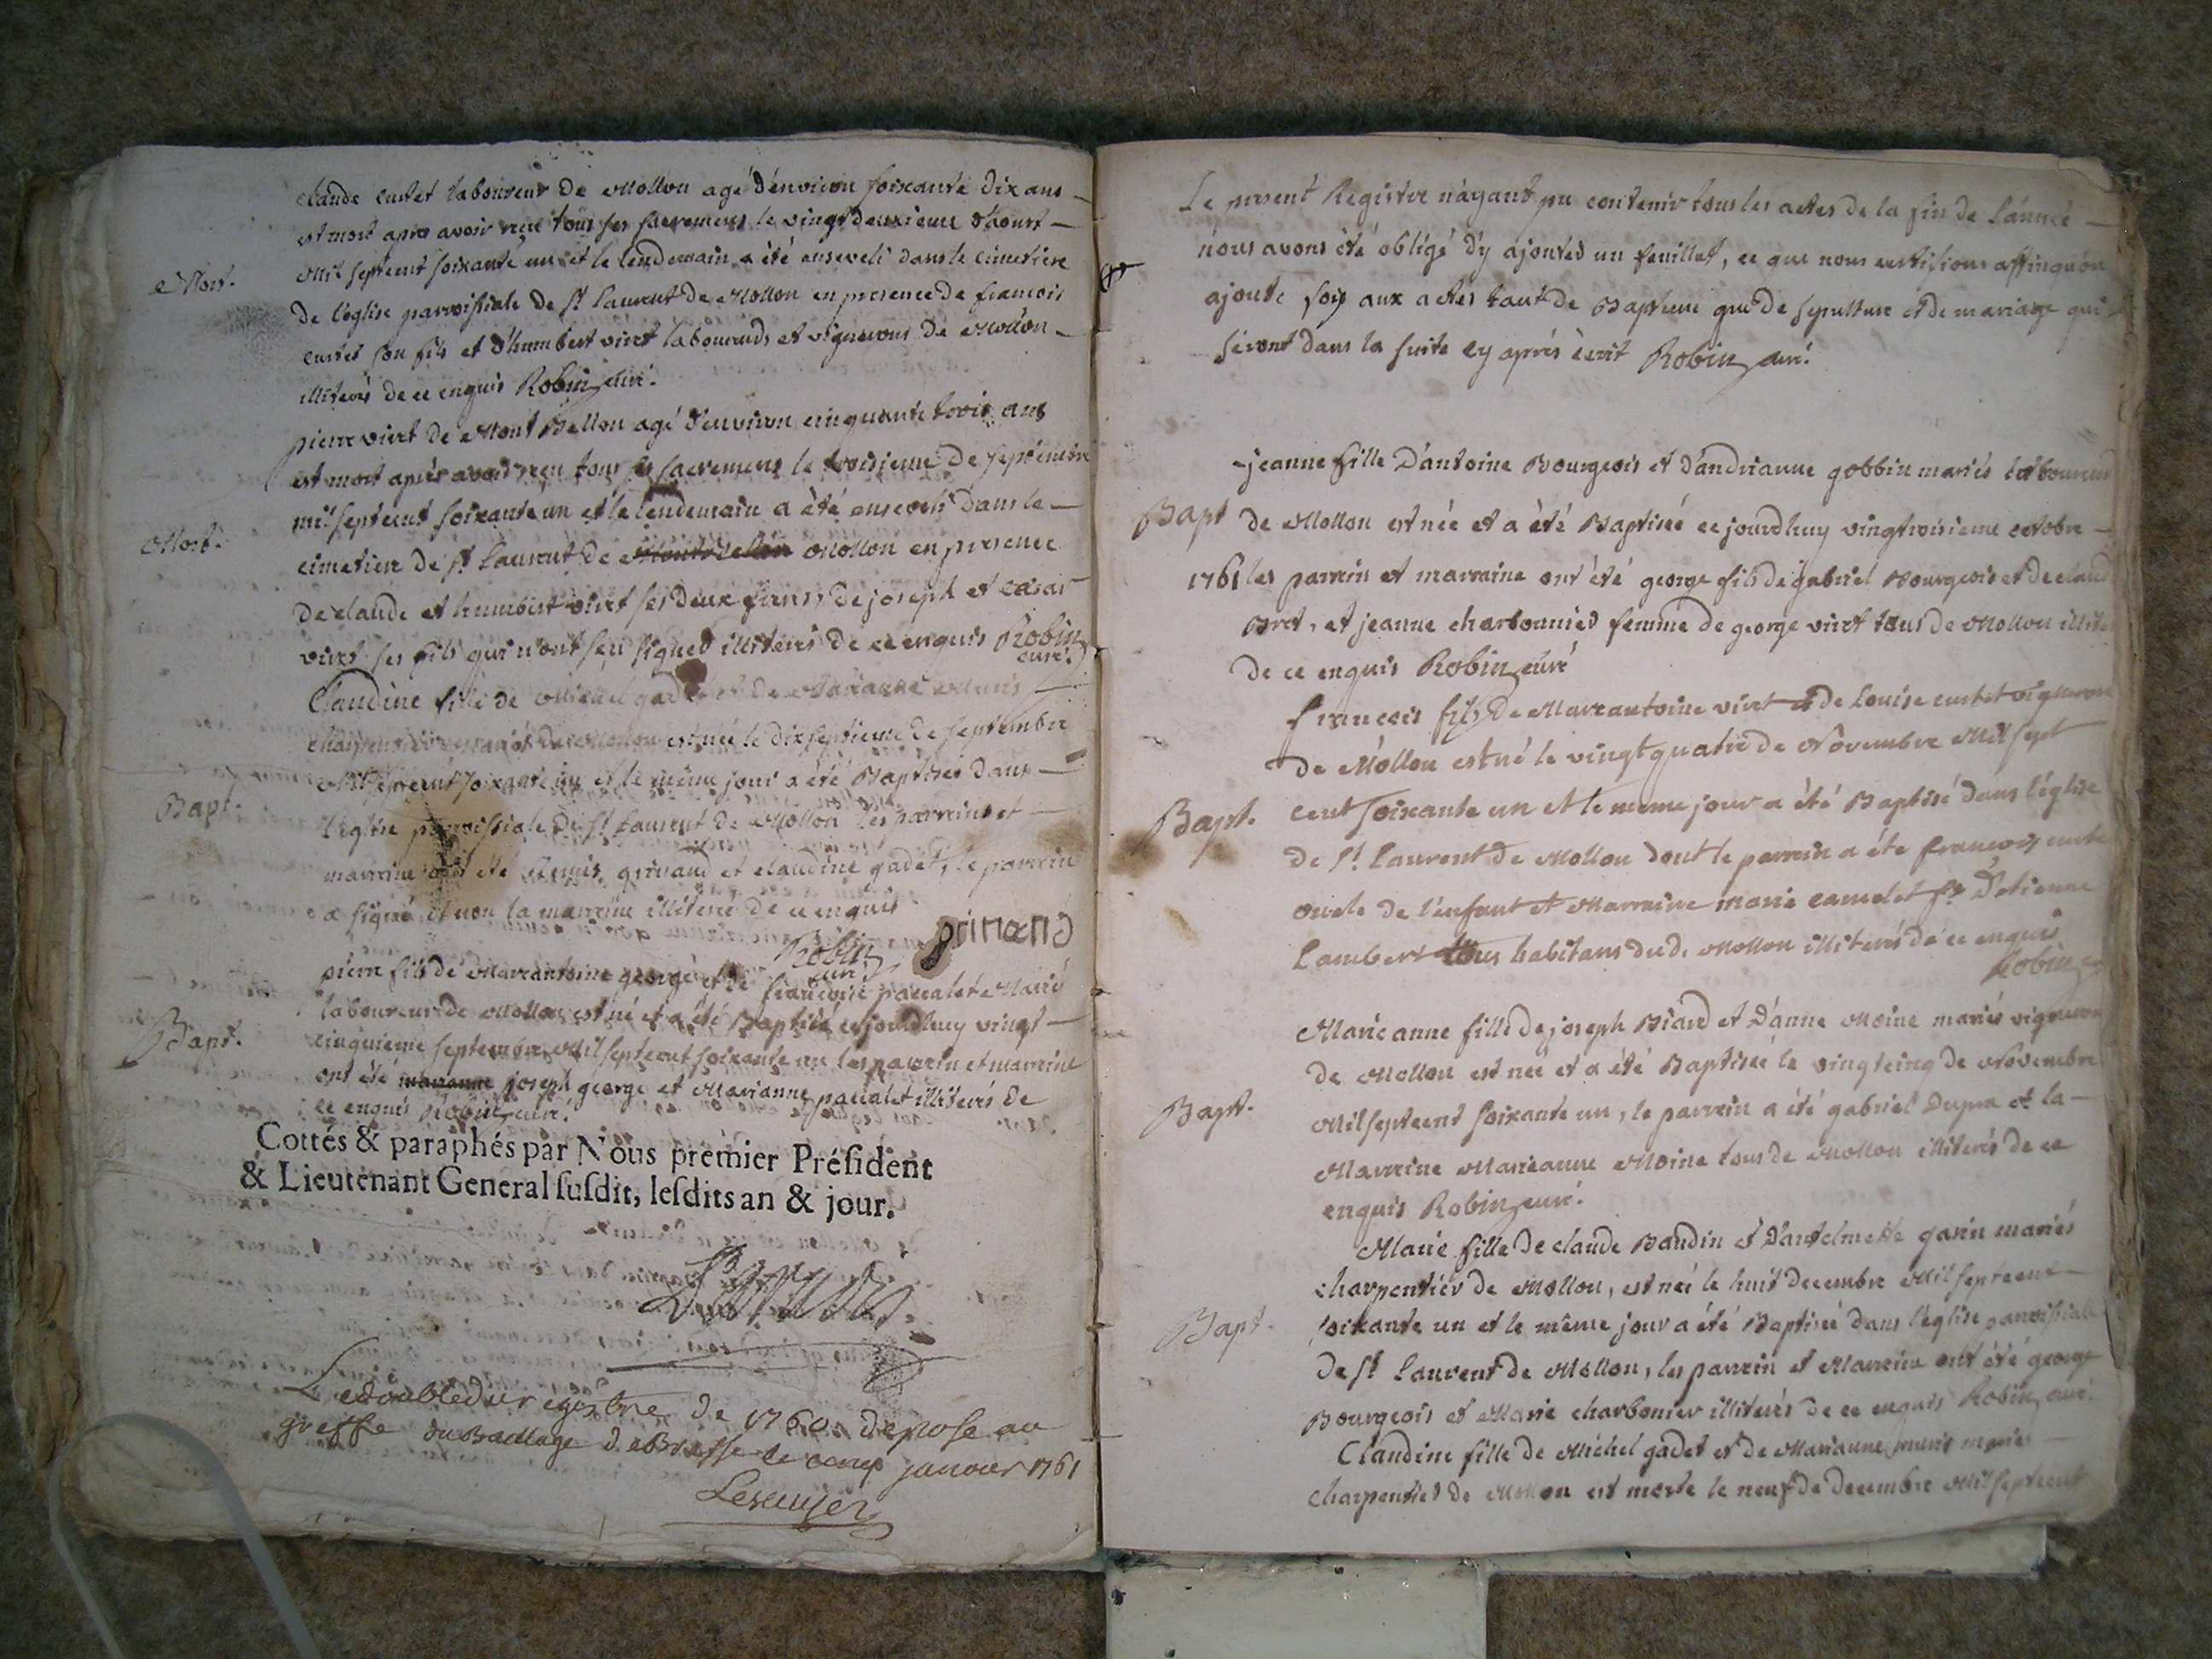 claude curtet laboureur de Mollon agé d'environ soixante dix ans
est mort apres avoir reçu tous ses sacremens le vingt deuxieme d'aoust
Mort.
Mil septcent soixante un et le lendemain a été enseveli dans le cimetiere
de l'église parroissiale de St Laurent de Mollon en presence de francois
curtet son fils et d'humbert viret laboureurs et vignerons de Mollon
illiterés de ce enquis Robin curé.
pierre viret de Mont Bellon agé d'environ cinquante trois ans
est mort après avoir reçu tous ses sacremens le troisieme de septembre
mil septcent soixante un et le lendemain a été enseveli dans le
Mort.
cimetiere de St Laurent de Mollon en presence
de claude et humbert viret ses deux freres, de joseph et
viret ses fils qui n'ont sçu signer illiterés de ce enquis Robin
curé.
Claudine fille de Michel gadet et de Marianne Muris
mariés de Mollon est née le dix septieme de septembre
Mil septcent soixante un et le même jour a été Baptisée dans
Bapt.
l'église parroissiale de St Laurent de Mollon les parrein et
marreine ont été grinand et claudine gadet, le parrein
a signé et non la marreine illiterée de ce enquis
Robin curé grinand
pierre fils de Marcantoine george et de francoise pacalet Mariés
laboureurs de Mollon est né et a été Baptisé ce jourdhuy vingt
Bapt.
cinquieme septembre Mil septcent soixante un les parrein et marreine
ont été joseph george et Marianne pacalet illiterés de
ce enquis Robin curé.
Cottés & paraphés par Nous premier Président
& Lieutenant General susdit, lesdits an & jour.
Le double du registre de 1760 depose au
greffe du Bailliage de Bresse le janvier 1761
Lescuyer
Le present Registre n'ayant pu contenir tous les actes de la fin de l'année
nous avons été obligé d'y ajouter un feuillet, ce que nous certifions affinqu'on
ajoute foiy aux actes tant de Bapteme que de sepulture et de mariage qui
seront dans la suite cy après ecrit Robin curé
jeanne fille d'antoine Bourgeois et d'andrianne gobbin mariés laboureurs
Bapt
de Mollon est née et a été Baptisée ce jourdhuy vingtroisieme octobre
1761 les parrein et marraine ont été george fils de gabriel Bourgeois et de
Bret, et jeanne charbonnier femme de george viret tous de Mollon
de ce enquis Robin curé
francois fils de Marcantoine viret et de Louise curtet vigneron
de Mollon est né le vingt quatre de Novembre Mil sept
Bapt.
cent soixante un et le meme jour a été Baptisé dans l'église
de St Laurent de Mollon dont le parrein a été francois
oncle de l'enfant et Marraine marie camelet fe d'etienne
Lambert tous habitans dud. Mollon illiterés de ce enquis
Robin
Marieanne fille de joseph Biard et d'anne Moine mariés vigneron
de Mollon est née et a été Baptisée le vingtcinq de Novembre
Bapt.
Mil septcent soixante un, le parrein a été gabriel Dupra et la
Marreine Marieanne Moine tous de Mollon illiterés de ce
enquis Robin curé.
Marie fille de claude Baudin et d'antelmette garin mariés
charpentier de Mollon, est née le huit decembre Mil septcent
Bapt.
soixante un et le même jour a été Baptisée dans l'église parroissiale
de St Laurent de Mollon, les parrein et Marreine ont été george
Bourgeois et Marie charbonier illiterés de ce enquis Robin curé.
Claudine fille de Michel gadet et de Marianne muris mariés
charpentier de Mollon est morte le neuf de decembre Mil septcent